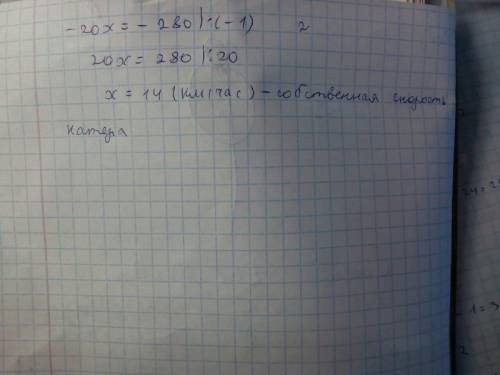 -20x = -280 |:(-1) 2
20x = 280 |:20
x = 14 (км/час) - собственная скорость
катера
24 = 2
- 1 = 3
2